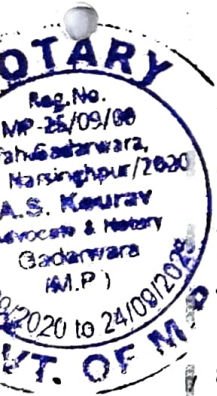 OTARY
Reg.No.
MP-25/09/00
Tah.Gadarwara,
Narsinghpur/2020
A.S. Kaurav
Advocate & Notary
Gadarwara
(M.P.)
/2020 to 24/09/202
VT. OF M.P.